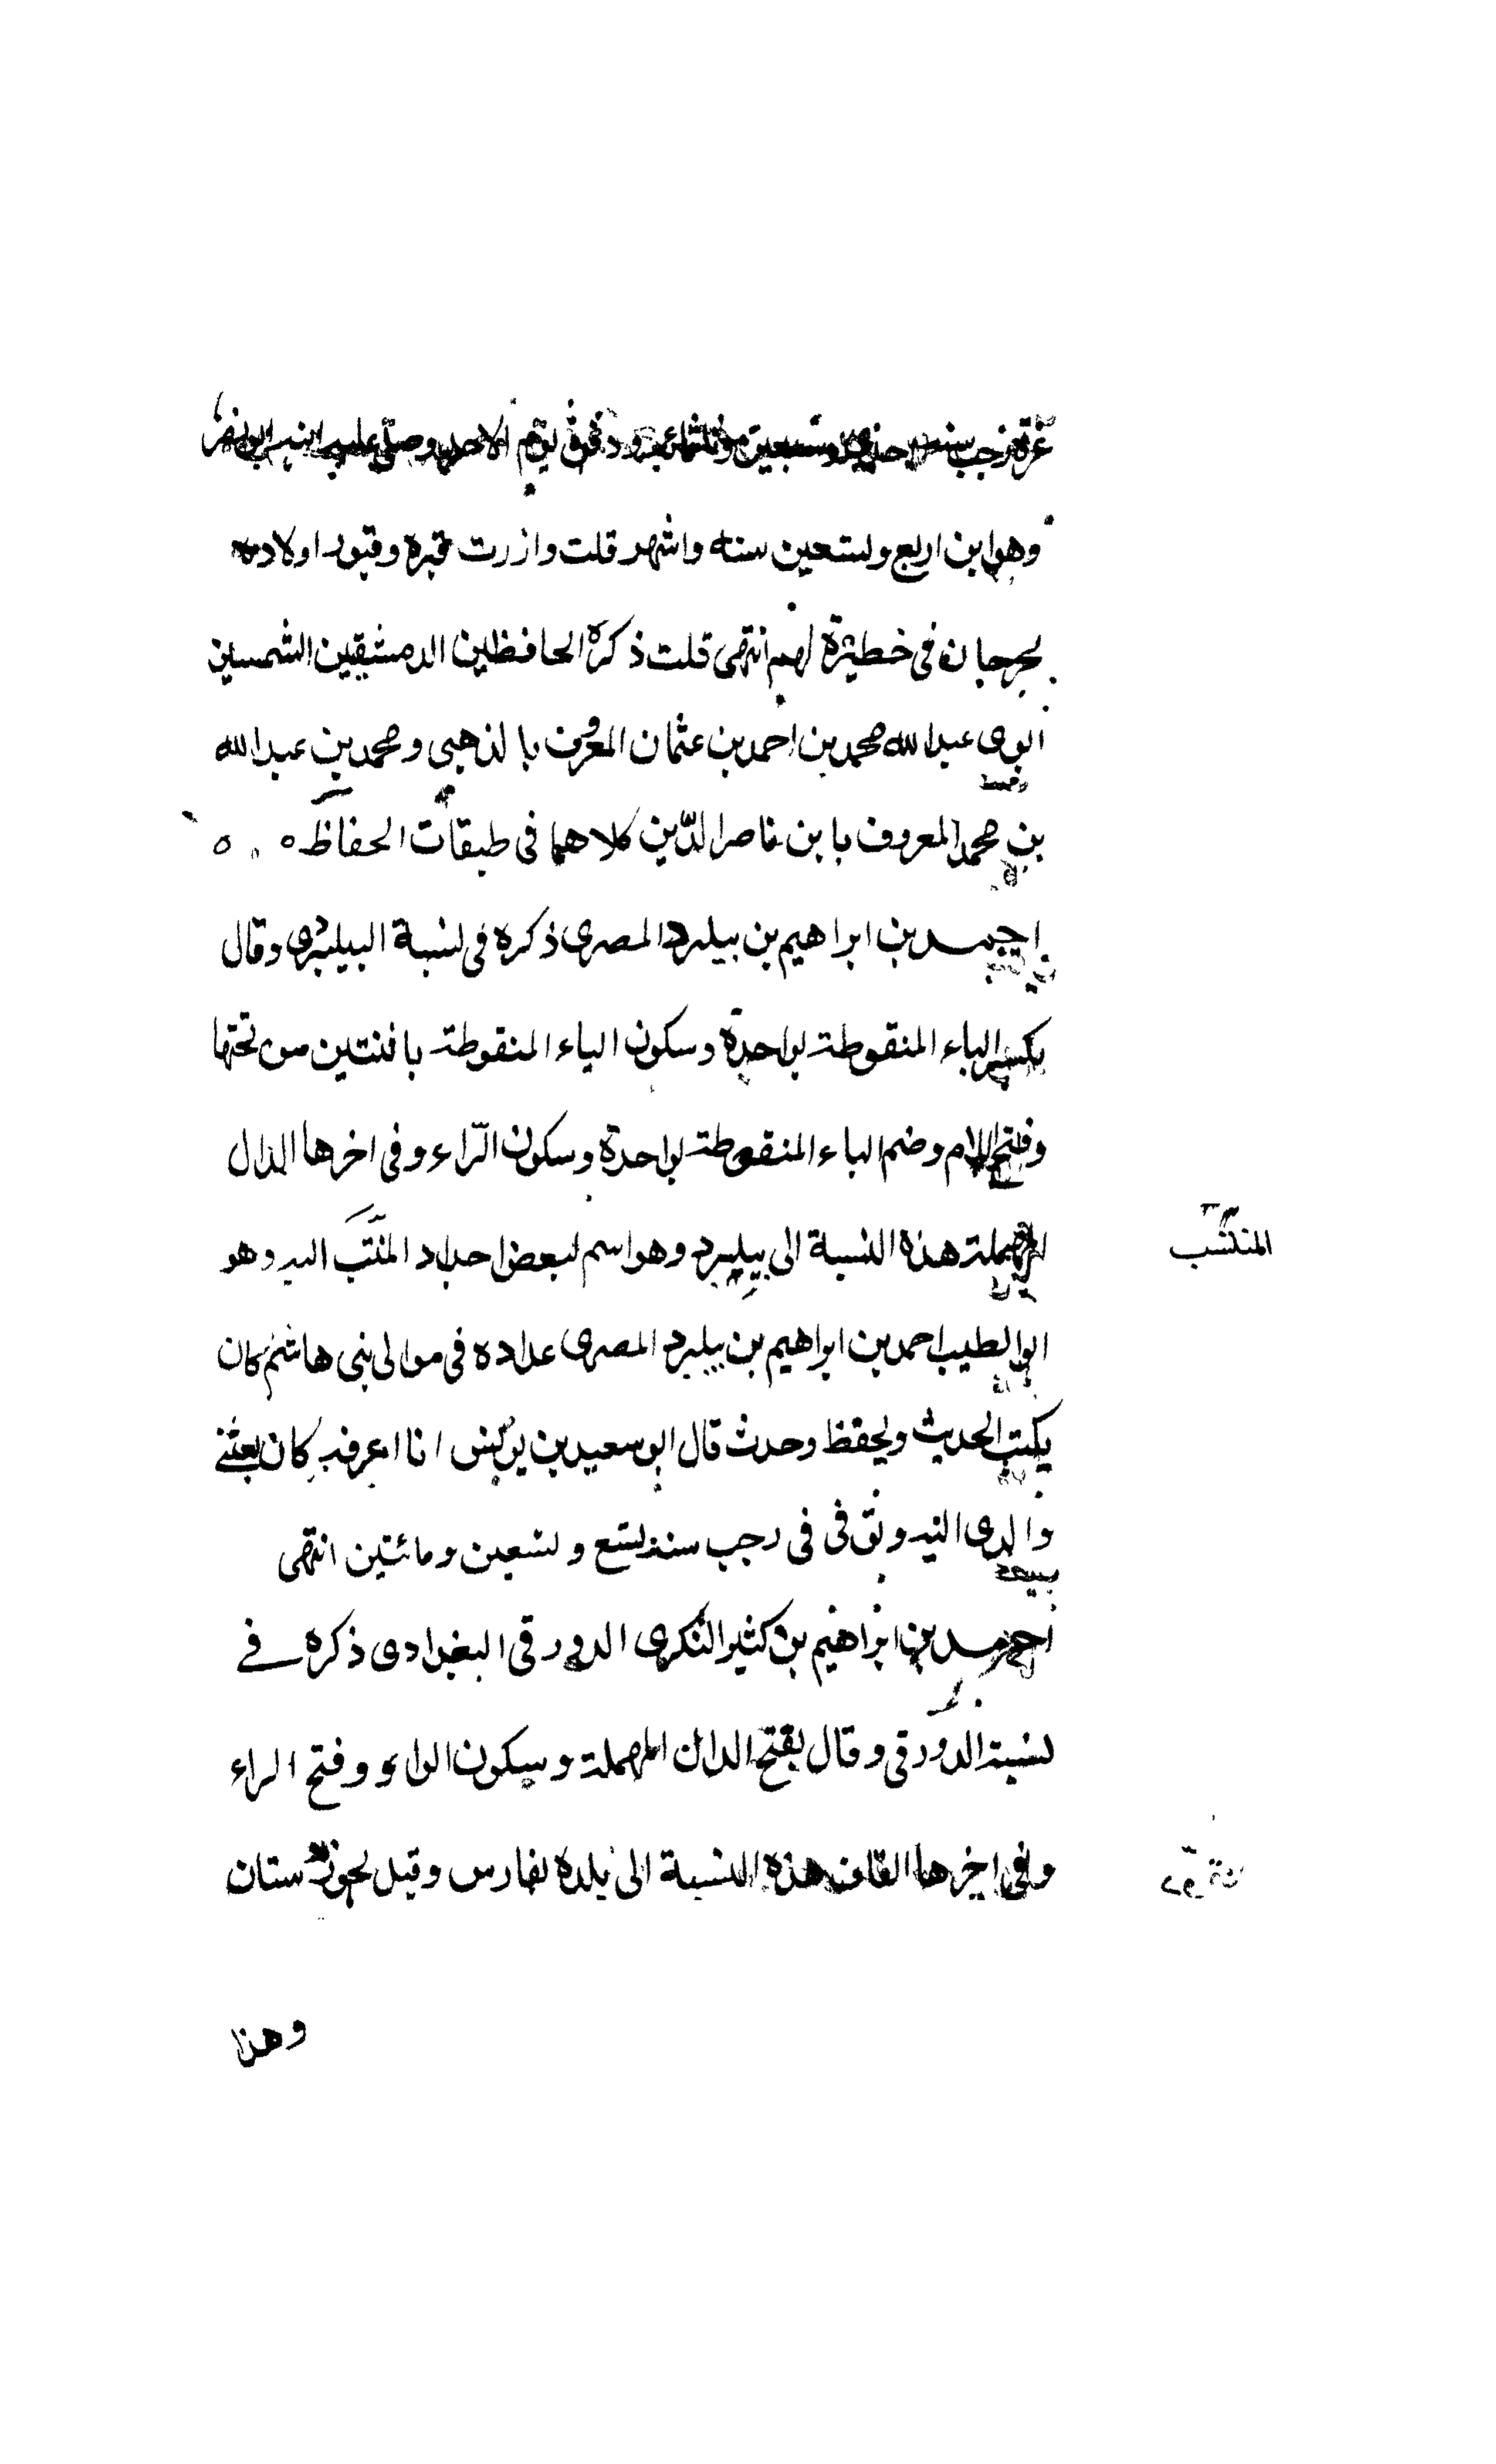 غرة رجب سنه احدى وسبعين وثلثمائه ودفن يوم الاحد وصلى عليه ابنه ابو نصر
وهو ابن اربع وتسعين سنه واشهر قلت وازرت قبره وقبور اولاده
بجرجان فى خطيرة لهم انتهى قلت ذكره الحافظين الدمشقين الشمسين
ابوى عبد الله محمد بن احمد بن عثمان المعروف بالذهبى ومحمد بن عبد الله
بن محمد المعروف بابن ناصر الدّين كلاهما فى طبقات الحفاظ ه ه
احمد بن ابراهيم بن بيلبرد المصرى ذكره فى نسبة البيلبردى وقال
بكسر الباء المنقوطة بواحدة وسكون الياء المنقوطة باثنتين من تحتها
وفتح اللام وضم الباء المنقوطة بواحدة وسكون الرّاء وفى اخرها الدال
المهملة هذه النسبة الى بيلبرد وهو اسم لبعض اجداد المنتَّب اليه وهو
المنتسب
ابو الطيب احمد بن ابراهيم بن بيلبرد المصرى عداده فى موالى بنى هاشم كان
يكتب الحديث ويحفظ وحدث قال ابو سعيد بن يونس انا اعرفه كان بعثنے
والدى اليه وتوفى فى رجب سنة تسع وتسعين ومائتين انتهى
احمد بن ابراهيم بن كثير النكرى الدورقى البغدادى ذكره فے
نسبة الدورقى وقال بفتح الدال المهملة وسكون الواو وفتح الراء
وفى اخرها القاف هذه النسبة الى بلده بفارس وقيل بخوزستان
وهذا